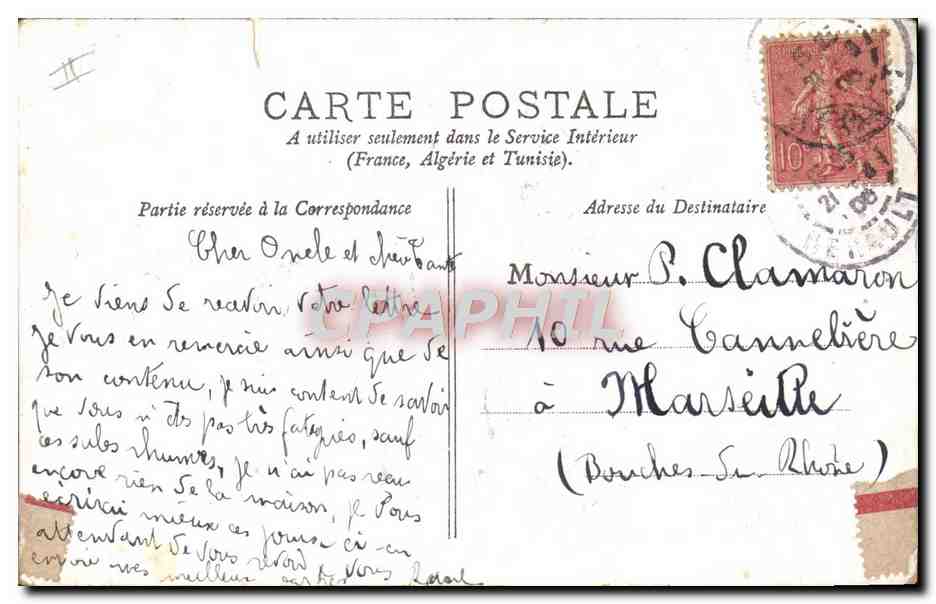 CARTE POSTALE
A utiliser seulement dans le Service Intérieur
(France, Algérie et Tunisie).
Partie réservée à la Correspondance
Cher Oncle et chère Tante
Je viens de recevoir votre lettre
je vous en remercie ainsi que de
son contenu, je suis content de savoir
que vous n'êtes pas très fatigués, sauf
ces sales rhumes, je n'ai pas reçu
encore rien de la maison, je vous
écrirai mieux ces jours ci en
attendant de vous revoir vous
envoie mes meilleurs
Adresse du Destinataire
Monsieur P. Clamaron
10 rue Cannebière
à Marseille
(Bouches du Rhône)
10
21
08
HERAULT
CPAPHIL